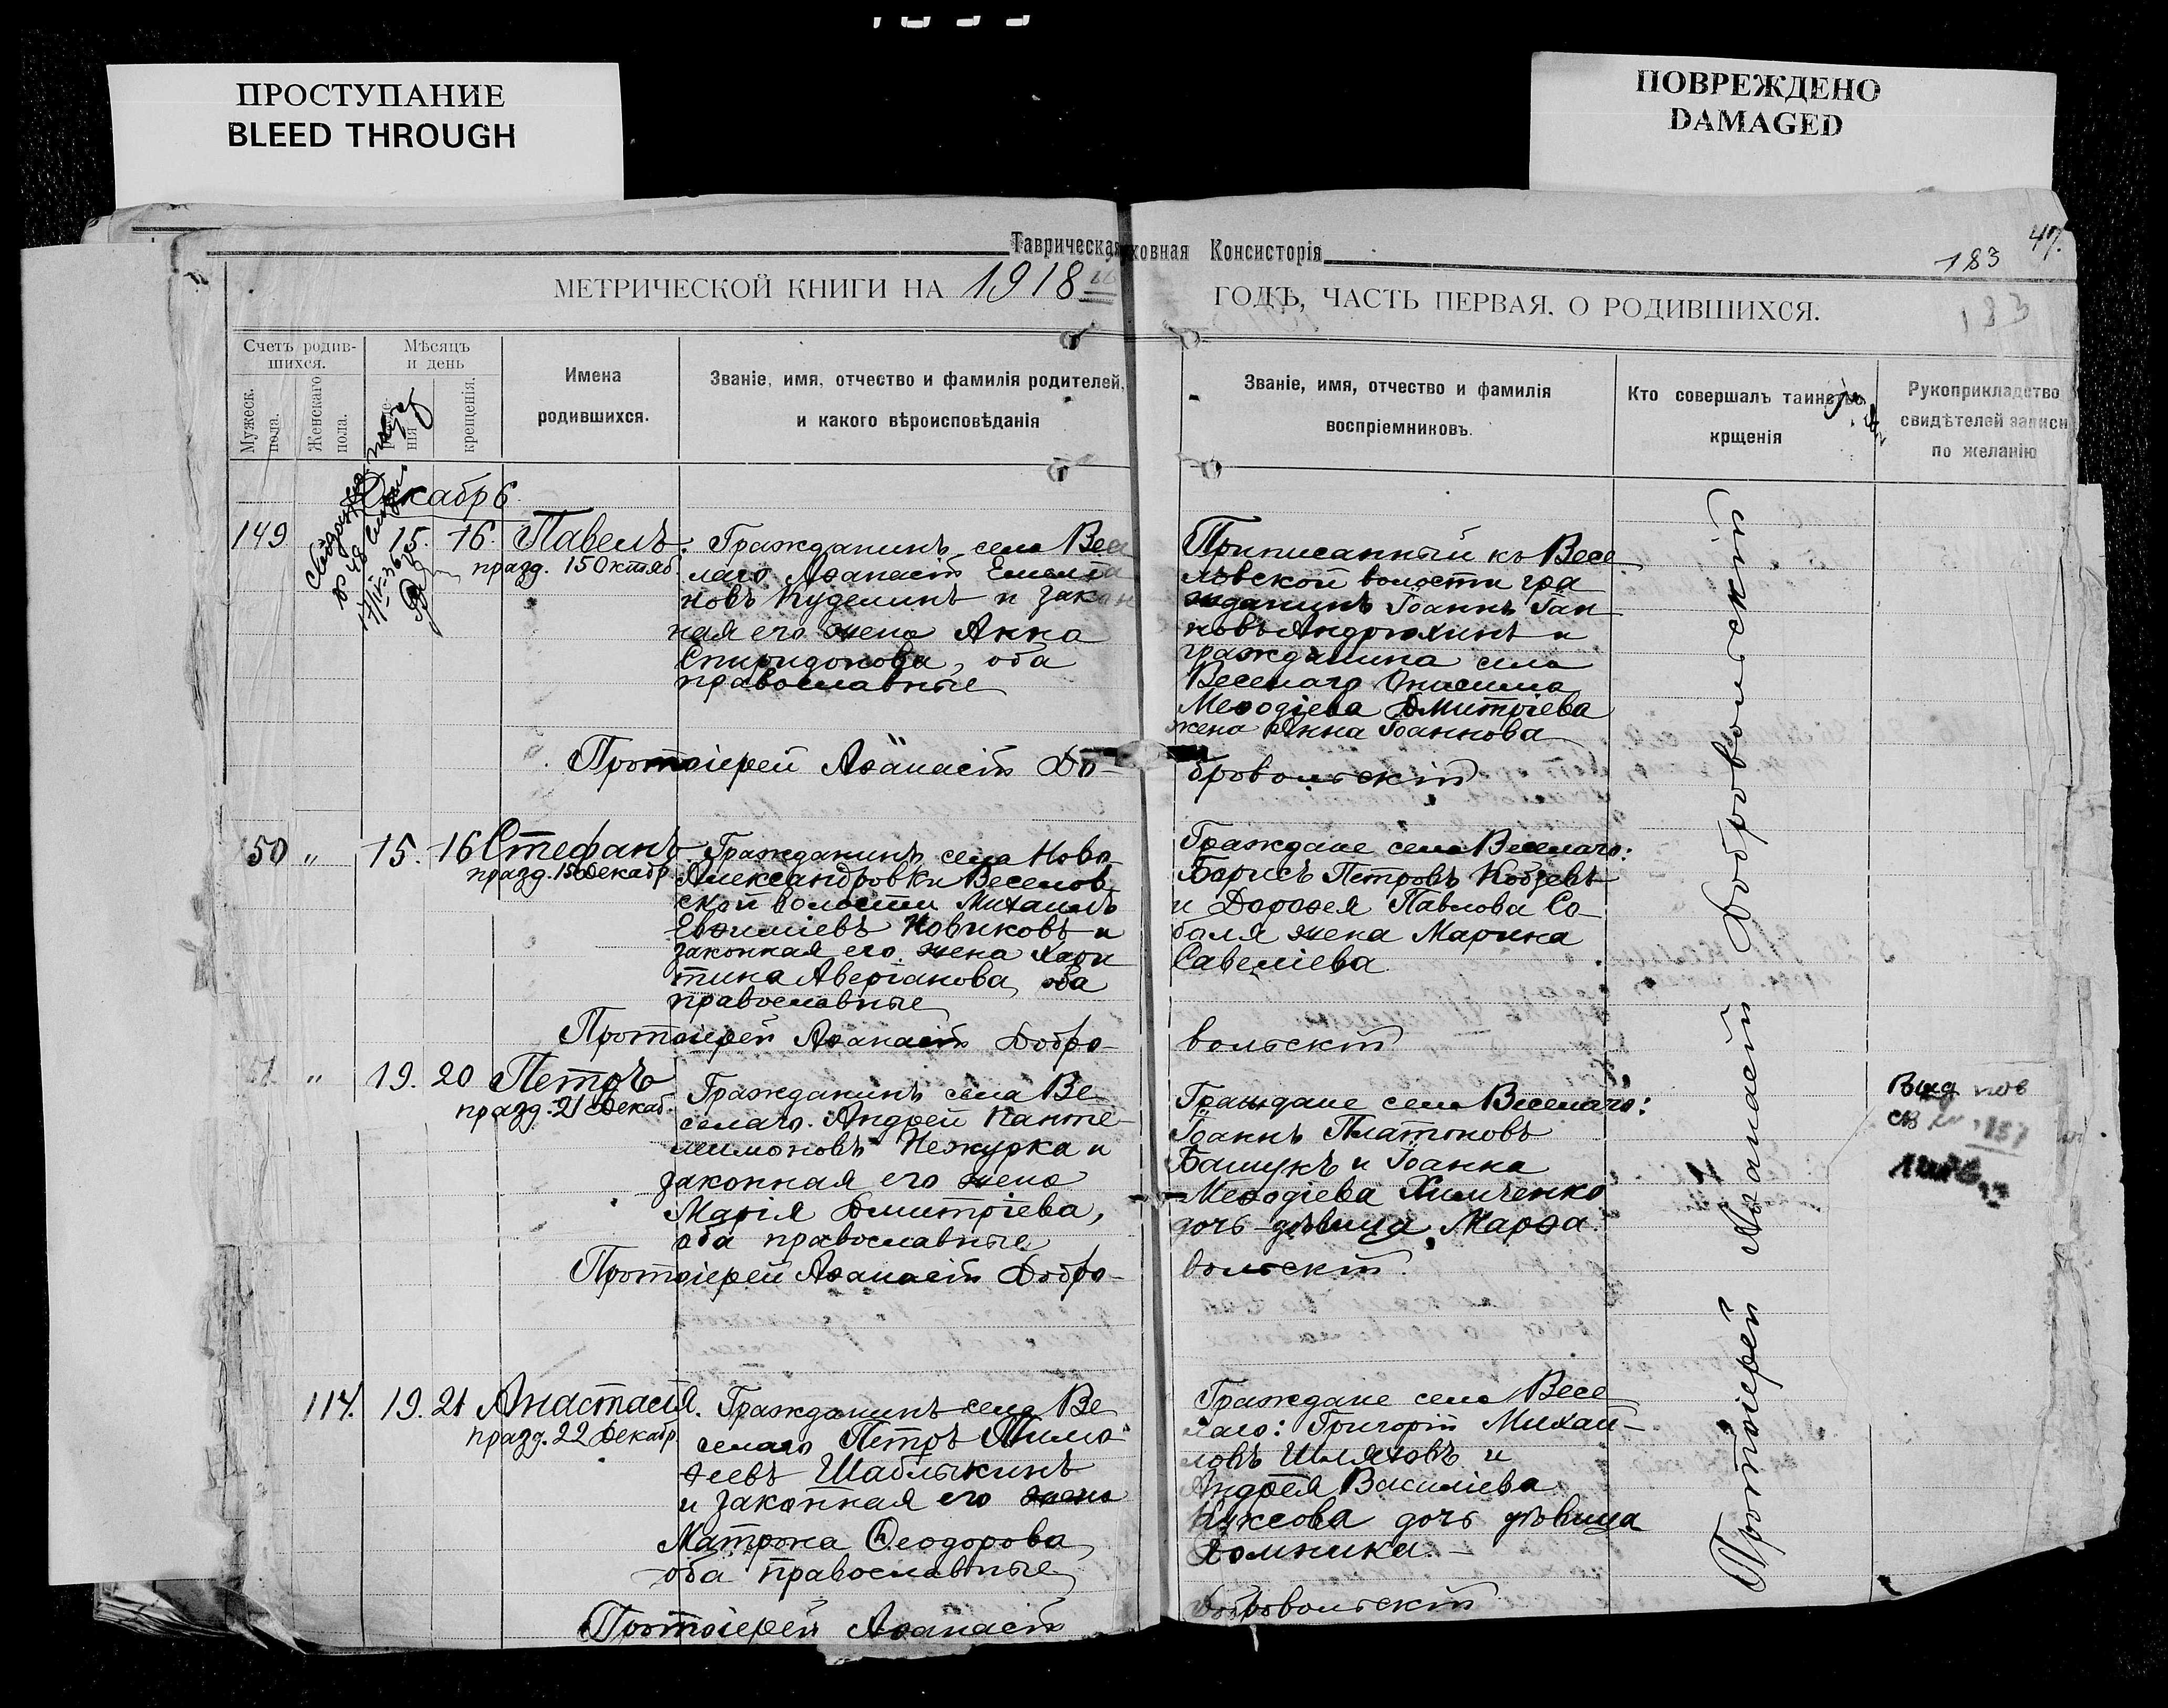 ПРОСТУПАНИЕ
BLEED THROUGH
ПОВРЕЖДЕНО
DAMAGED
47.
183
183
Таврическая ховная Консисторія
МЕТРИЧЕСКОЙ КНИГИ НА 1918
ГОДЪ, ЧАСТЬ ПЕРВАЯ, О РОДИВШИХСЯ.
Счетъ родив-
шихся.
Мужеск.
пола.
Женскаго
пола.
Мѣсяцъ
и день
крещенія.
Имена
родившихся.
Званіе, имя, отчество и фамилія родителей,
и какого вѣроисповѣданія
Званіе, имя, отчество и фамилія
воспріемниковъ.
Кто совершалъ таинство
крщенія
Рукоприкладство
свидѣтелей записи
по желанію
Декабрь
149
15. 16.
Павелъ.
празд. 15 Октяб.
Гражданинъ села Весе
лаго Аѳанасій Емелія
новъ Куделинъ и закон
ная его жена Анна
Спиридонова, оба
православные
Приписанный къ Весе
ловской волости гра
жданинъ Іоаннъ Іоан
новъ Андрюхинъ и
гражданина села
Веселаго Онисима
Меѳодіева Дмитріева
жена Анна Іоаннова
Протоіерей Аѳанасій До-
бровольскій
150 "
15. 16
Стефанъ
празд. 15 Декабр.
Гражданинъ села Ново
Александровки Веселов
ской волости Михаилъ
Евѳиміевъ Новиковъ и
законная его жена Хари
тина Аверіанова, оба
православные
Граждане села Веселаго:
Борисъ Петровъ Кобзевъ
и Дороѳея Павлова Со-
боля жена Марина
Савеліева
Протоіерей Аѳанасій Добро-
вольскій
51 "
19. 20
Петръ
празд. 21 Декаб.
Гражданинъ села Ве
селаго Андрей Панте-
леимоновъ Нежурка и
законная его жена
Марія Дмитріева,
оба православные
Граждане села Веселаго:
Іоаннъ Платоновъ
Башукъ и Іоанна
Меѳодіева Химченко
дочь дѣвица, Марѳа
Протоіерей Аѳанасій Добро-
вольскій
114.
19. 21
Анастасія.
празд. 22 Декабр.
Гражданинъ села Ве
селаго Петръ Тимо-
ѳеевъ Шаблыкинъ
и законная его жена
Матрона Ѳеодорова,
оба православные
Граждане села Весе
лаго: Григорій Михаи-
ловъ Шляховъ и
Андрея Василіева
Куксова дочь дѣвица
Домника.
Протоіерей Аѳанасій
Добровольскій
Протоіерей Аѳанасій Добровольскій